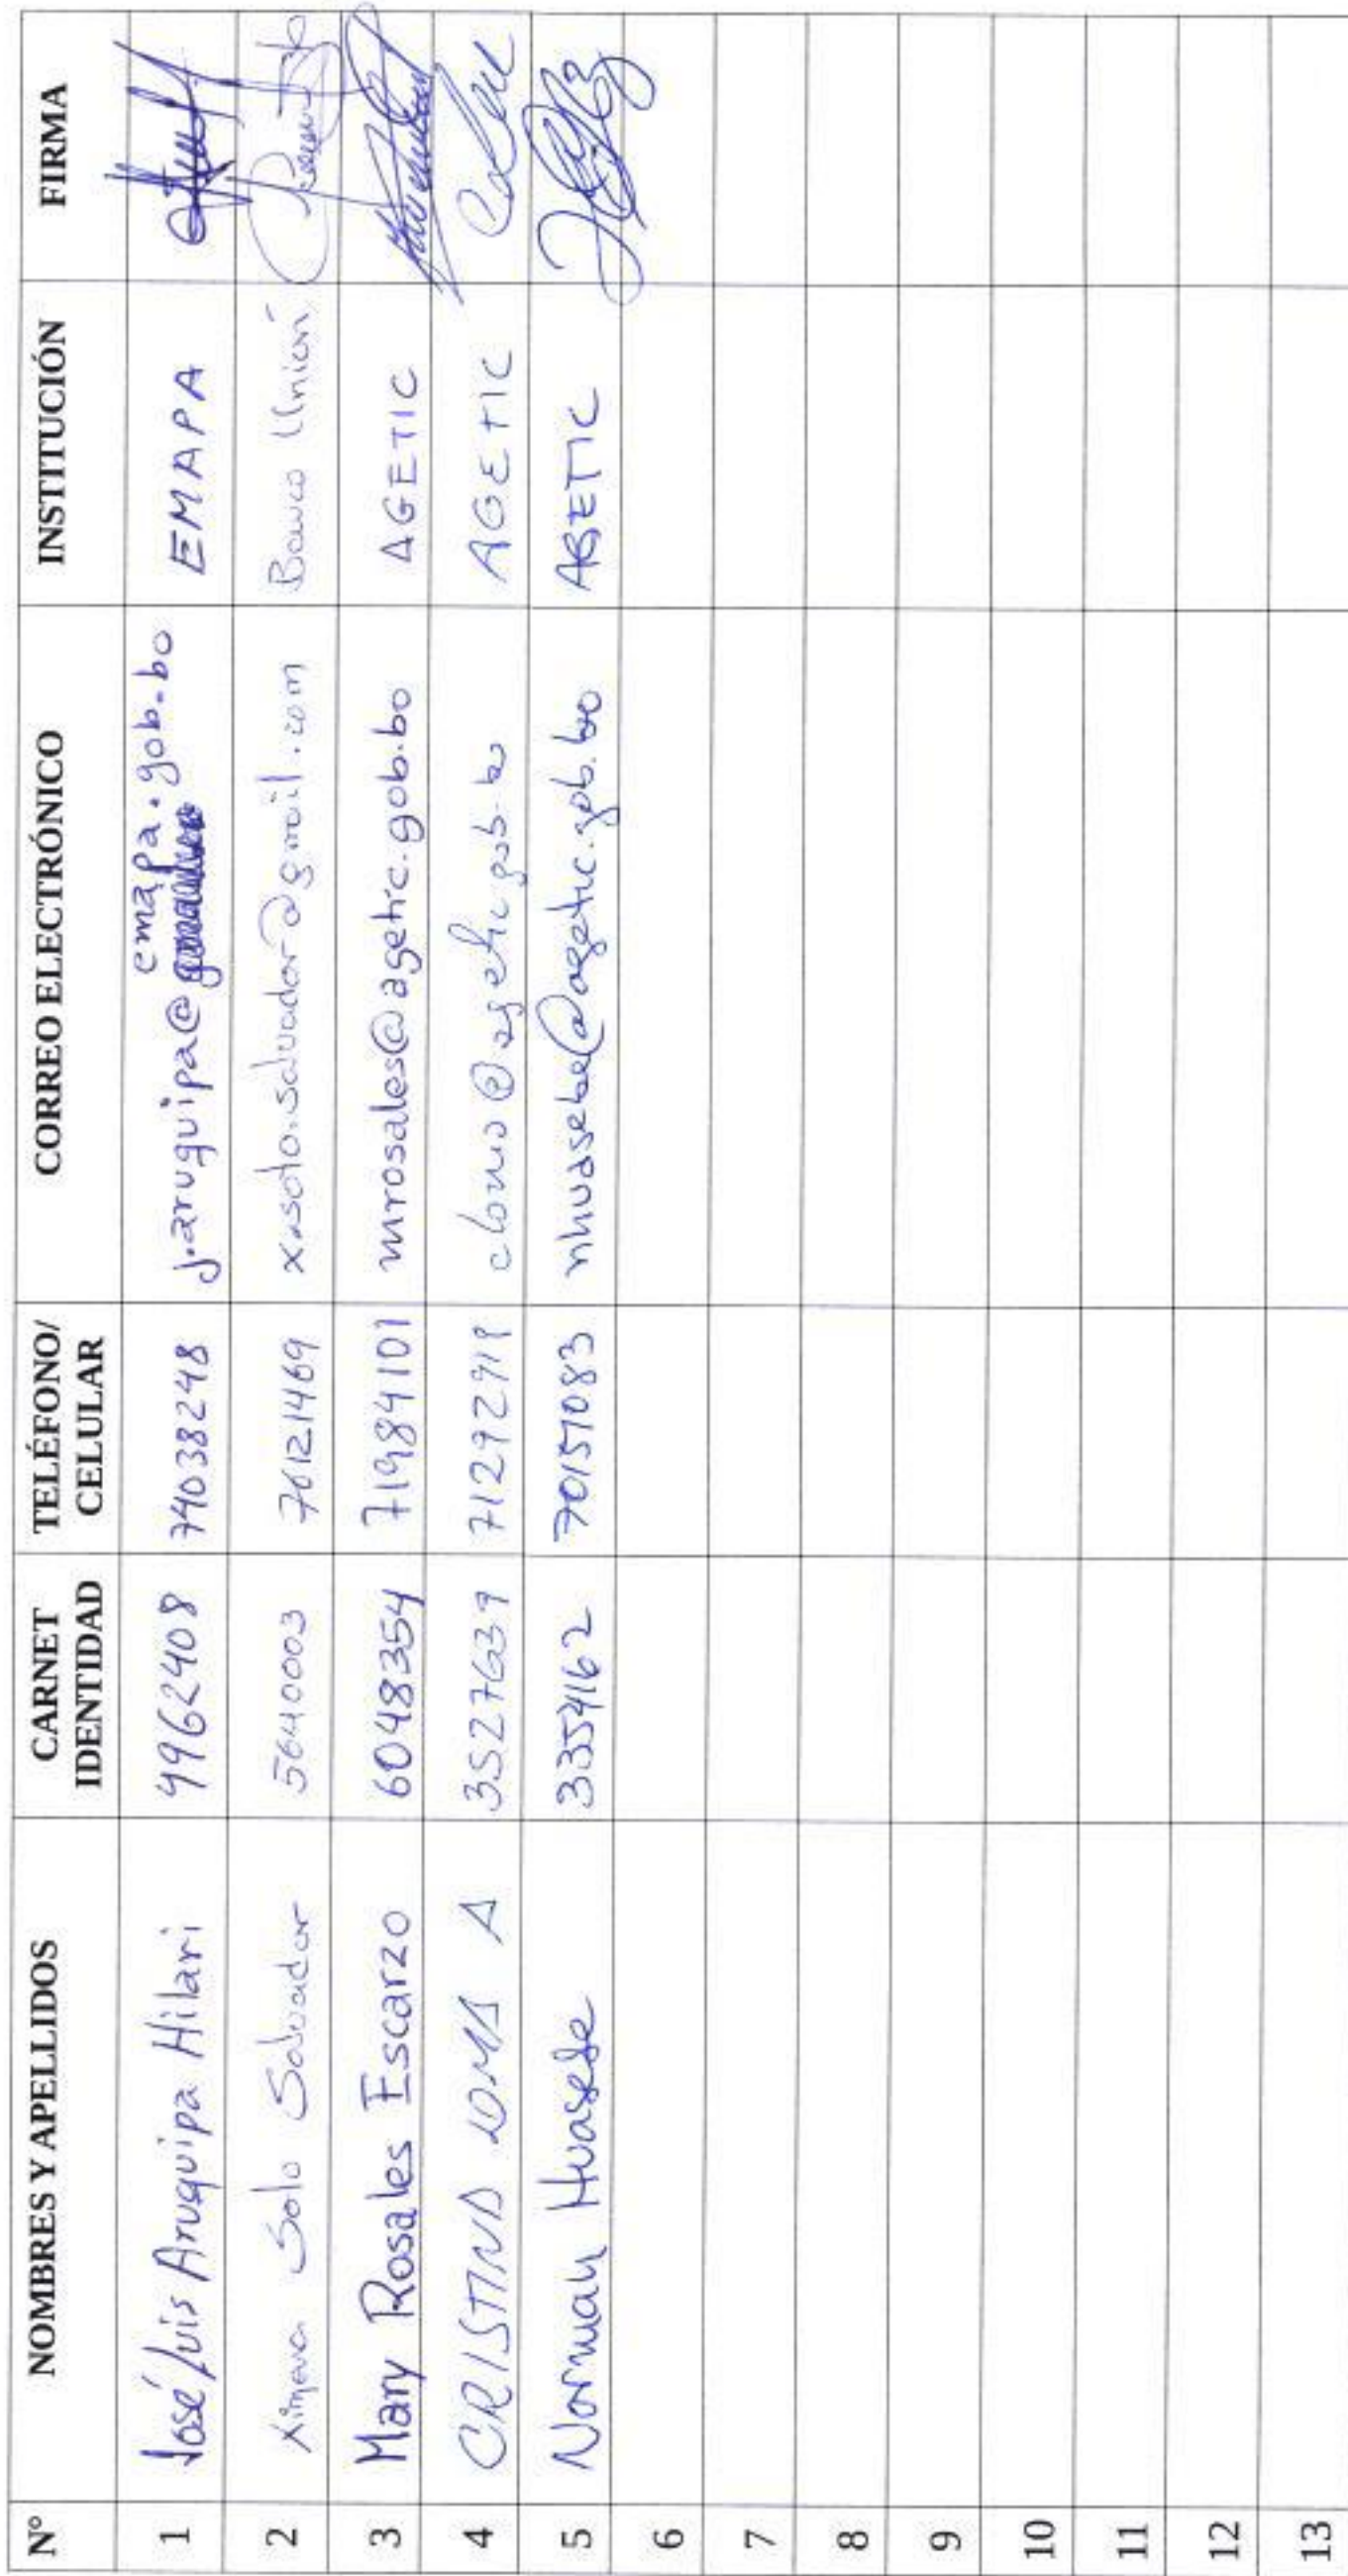 N° NOMBRES Y APELLIDOS CARNET IDENTIDAD TELÉFONO/ CELULAR CORREO ELECTRÓNICO INSTITUCIÓN FIRMA
1 José Luis Aruquipa Hilari 9962408 74038248 j.aruquipa@emapa.gob.bo EMAPA
2 Ximena Soto Salvador 5640003 70121469 x.soto.salvador@gmail.com Banco Unión
3 Mary Rosales Escarzo 6048354 71984101 mrosales@agetic.gob.bo AGETIC
4 CRISTINA LOMA A 3527639 71292919 cloma@agetic.gob.bo AGETIC
5 Norman Huasebe 3354162 70157083 nhuasebe@agetic.gob.bo AGETIC
6
7
8
9
10
11
12
13